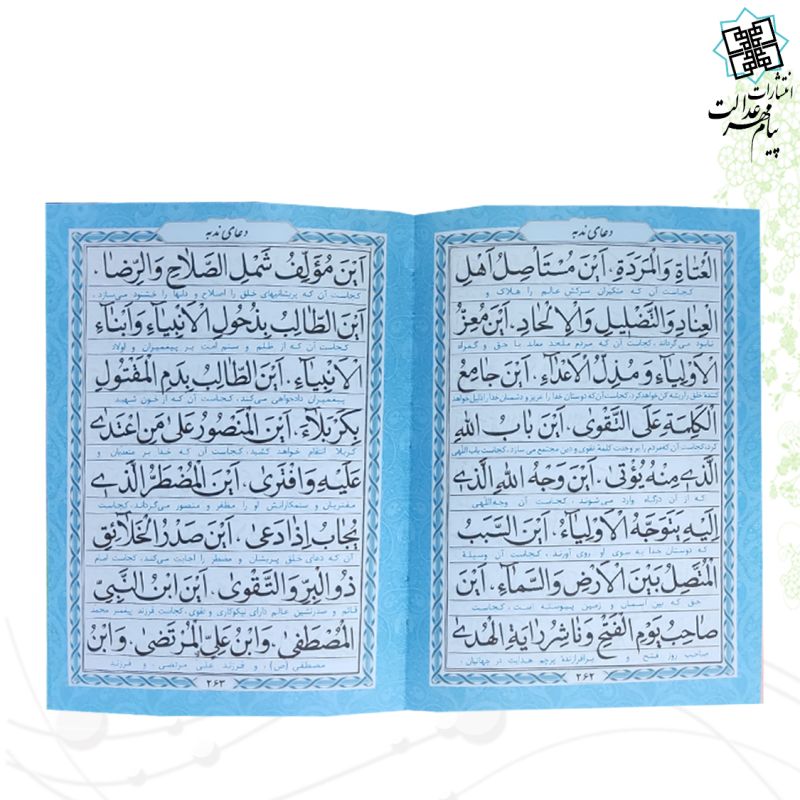 انتشارات
پیام مهر عدالت
دعای ندبه
الْعُتَاةِ وَالْمَرَدَةِ، اَیْنَ مُسْتَاْصِلُ اَهْلِ
کجاست آن که متکبران سرکش عالم را هلاک و
الْعِنَادِ وَالتَّضْلیلِ وَالْاِلْحَادِ، اَیْنَ مُعِزُّ
نابود می‌گرداند، کجاست آن که مردم ملحد معاند با حق و گمراه
الْاَوْلِیَاءِ وَ مُذِلُّ الْاَعْدَاءِ، اَیْنَ جَامِعُ
کننده خلق را ریشه کن خواهد کرد، کجاست آن که دوستان خدا را عزیز و دشمنان خدا را ذلیل خواهد
الْكَلِمَةِ عَلَی التَّقْوٰی، اَیْنَ بَابُ اللهِ
کرد، کجاست آن که مردم را بر وحدت کلمهٔ تقوی و دین مجتمع می سازد، کجاست باب اللهی
الَّذی مِنْهُ یُؤْتٰی، اَیْنَ وَجْهُ اللهِ الَّذی
که از آن درگاه وارد می‌شوند، کجاست آن وجه‌اللهی
اِلَیْهِ یَتَوَجَّهُ الْاَوْلِیَاءُ، اَیْنَ السَّبَبُ
که دوستان خدا به سوی او روی آورند، کجاست آن وسیلهٔ
الْمُتَّصِلُ بَیْنَ الْاَرْضِ وَالسَّمَاءِ، اَیْنَ
حق که بین آسمان و زمین پیوسته است، کجاست
صَاحِبُ یَوْمِ الْفَتْحِ وَ نَاشِرُ رَایَةِ الْهُدٰی
صاحب روز فتح و برافرازندهٔ پرچم هدایت در جهانیان،
۲۶۲
دعای ندبه
اَیْنَ مُؤَلِّفُ شَمْلِ الصَّلَاحِ وَالرِّضَا،
کجاست آن که پریشانیهای خلق را اصلاح و دلها را خشنود می‌سازد،
اَیْنَ الطَّالِبُ بِذُحُولِ الْاَنْبِیَاءِ وَ اَبْنَاءِ
کجاست آن که از ظلم و ستم امت بر پیغمبران و اولاد
الْاَنْبِیَاءِ، اَیْنَ الطَّالِبُ بِدَمِ الْمَقْتُولِ
پیغمبران دادخواهی می‌کند، کجاست آن که از خون شهید
بِكَرْبَلَاءَ، اَیْنَ الْمَنْصُورُ عَلٰی مَنِ اعْتَدٰی
کربلا انتقام خواهد کشید، کجاست آن که خدا بر متعدیان و
عَلَیْهِ وَ افْتَرٰی، اَیْنَ الْمُضْطَرُّ الَّذی
مفتریان و ستمکارانش او را مظفر و منصور می‌گرداند، کجاست
یُجَابُ اِذَا دَعٰی، اَیْنَ صَدْرُ الْخَلَائِقِ
آن که دعای خلق پریشان و مضطر را اجابت می‌کند، کجاست امام
ذُوالْبِرِّ وَالتَّقْوٰی، اَیْنَ ابْنُ النَّبِیِّ
قائم و صدرنشین عالم دارای نیکوکاری و تقوی، کجاست فرزند پیغمبر محمد
الْمُصْطَفٰی، وَابْنُ عَلِیٍّ الْمُرْتَضٰی، وَابْنُ
مصطفی (ص)، و فرزند علی مرتضی، و فرزند
۲۶۳